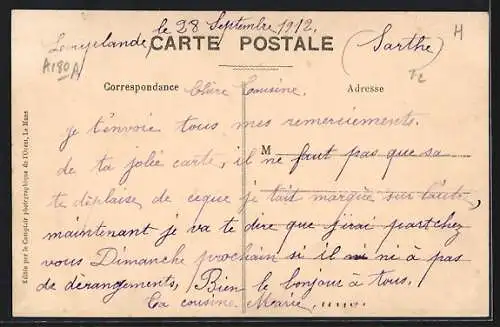 le 28 Septembre 1912.
CARTE POSTALE
(Sarthe)
H
A180A
TL
Correspondance
Adresse
Chère Cousine.
je t'envoie tous mes remerciements.
M
de ta jolée carte, il ne faut pas que sa
te déplaise de ceque je tait margiée sur l'autre,
maintenant je va te dire que j'irai part chez
vous Dimanche prochain si il ni né à pas
de dérangements, Bien le bonjour à tous.
Ta cousine Marie
Editée par le Comptoir photographique de l'Ouest, Le Mans